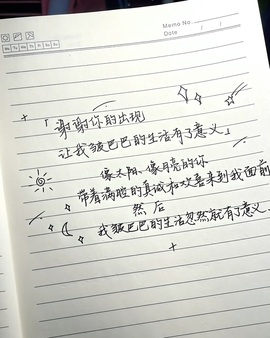 Memo No.
Date / /
Mo Tu We Th Fr Sa Su
「谢谢你的出现
让我皱巴巴的生活有了意义」
像太阳、像月亮的你
带着满腔的真诚和欢喜来到我面前
然后
我皱巴巴的生活忽然就有了意义.